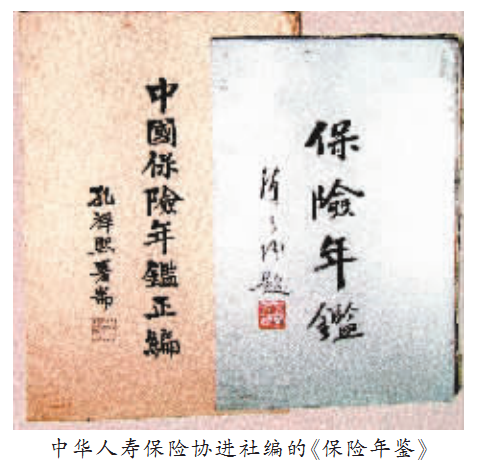 中國保險年鑑正編
孔祥熙署耑
保險年鑑
題
中华人寿保险协进社编的《保险年鉴》